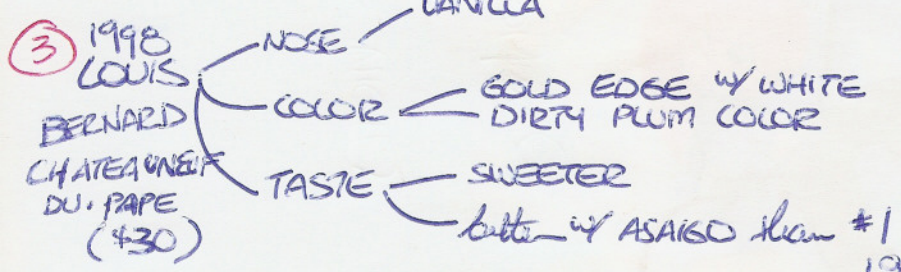 VANILLA
3 1998
LOUIS
BERNARD
CHATEAUNEUF
DU. PAPE
($30)
NOSE
COLOR
GOLD EDGE w/ WHITE
DIRTY PLUM COLOR
TASTE
SWEETER
w/ ASAIGO than #1